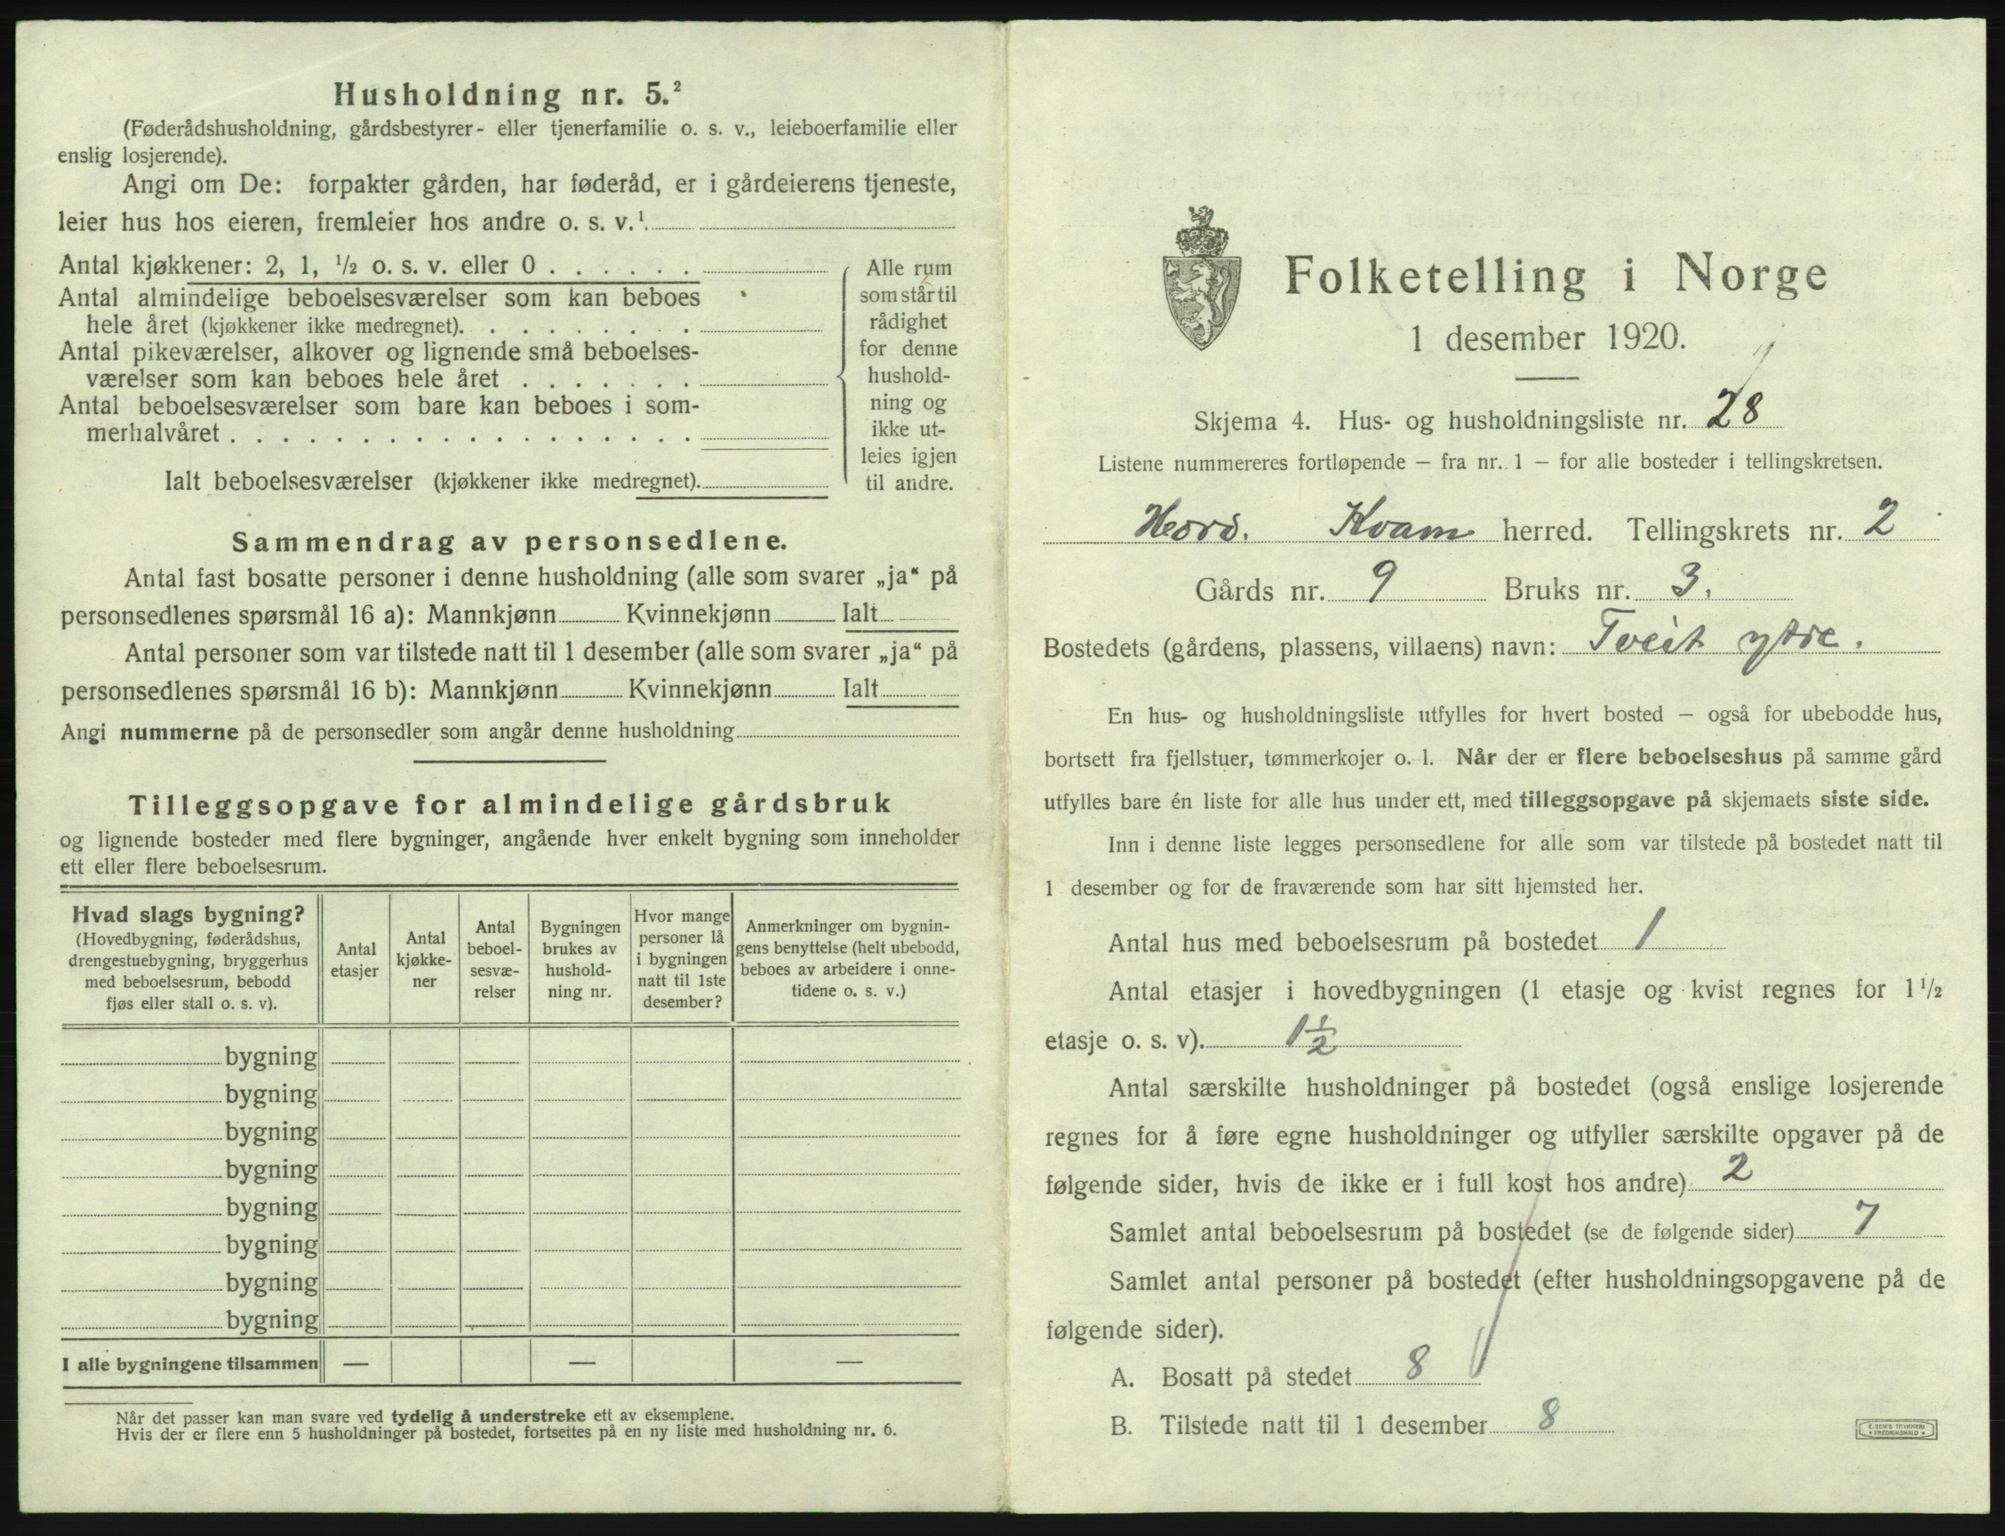 Husholdning nr. 5.²
(Føderådshusholdning, gårdsbestyrer- eller tjenerfamilie o. s. v., leieboerfamilie eller
enslig losjerende).
Angi om De: forpakter gården, har føderåd, er i gårdeierens tjeneste,
leier hus hos eieren, fremleier hos andre o. s. v.¹.
Antal kjøkkener: 2, 1, ¹/₂ o. s. v. eller 0 . . . . . .
Antal almindelige beboelsesværelser som kan beboes
hele året (kjøkkener ikke medregnet). . . . . . . . .
Antal pikeværelser, alkover og lignende små beboelses-
værelser som kan beboes hele året . . . . . . .
Antal beboelsesværelser som bare kan beboes i som-
merhalvåret . . . . . . . . . . . . . . . . . .
Ialt beboelsesværelser (kjøkkener ikke medregnet).
Alle rum
som står til
rådighet
for denne
hushold-
ning og
ikke ut-
leies igjen
til andre.
Sammendrag av personsedlene.
Antal fast bosatte personer i denne husholdning (alle som svarer „ja“ på
personsedlenes spørsmål 16 a): Mannkjønn Kvinnekjønn Ialt
Antal personer som var tilstede natt til 1 desember (alle som svarer „ja“ på
personsedlenes spørsmål 16 b): Mannkjønn Kvinnekjønn Ialt
Angi nummerne på de personsedler som angår denne husholdning
Tilleggsopgave for almindelige gårdsbruk
og lignende bosteder med flere bygninger, angående hver enkelt bygning som inneholder
ett eller flere beboelsesrum.
Hvad slags bygning?
(Hovedbygning, føderådshus,
drengestuebygning, bryggerhus
med beboelsesrum, bebodd
fjøs eller stall o. s. v).
Antal
etasjer
Antal
kjøkke-
ner
Antal
beboel-
sesvæ-
relser
Bygningen
brukes av
hushold-
ning nr.
Hvor mange
personer lå
i bygningen
natt til 1ste
desember?
Anmerkninger om bygnin-
gens benyttelse (helt ubebodd,
beboes av arbeidere i onne-
tidene o. s. v.)
bygning
bygning
bygning
bygning
bygning
bygning
bygning
bygning
I alle bygningene tilsammen — — —
Når det passer kan man svare ved tydelig å understreke ett av eksemplene.
Hvis der er flere enn 5 husholdninger på bostedet, fortsettes på en ny liste med husholdning nr. 6.
Folketelling i Norge
1 desember 1920.
Skjema 4. Hus- og husholdningsliste nr. 28
Listene nummereres fortløpende — fra nr. 1 — for alle bosteder i tellingskretsen.
Hord. Kvam herred. Tellingskrets nr. 2
Gårds nr. 9 Bruks nr. 3.
Bostedets (gårdens, plassens, villaens) navn: Tveit ytre.
En hus- og husholdningsliste utfylles for hvert bosted — også for ubebodde hus,
bortsett fra fjellstuer, tømmerkojer o. l. Når der er flere beboelseshus på samme gård
utfylles bare én liste for alle hus under ett, med tilleggsopgave på skjemaets siste side.
Inn i denne liste legges personsedlene for alle som var tilstede på bostedet natt til
1 desember og for de fraværende som har sitt hjemsted her.
Antal hus med beboelsesrum på bostedet 1
Antal etasjer i hovedbygningen (1 etasje og kvist regnes for 1¹/₂
etasje o. s. v). 1½
Antal særskilte husholdninger på bostedet (også enslige losjerende
regnes for å føre egne husholdninger og utfyller særskilte opgaver på de
følgende sider, hvis de ikke er i full kost hos andre) 2
Samlet antal beboelsesrum på bostedet (se de følgende sider) 7
Samlet antal personer på bostedet (efter husholdningsopgavene på de
følgende sider).
A. Bosatt på stedet 8
B. Tilstede natt til 1 desember 8